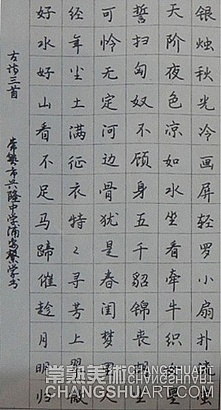 银烛秋光冷画屏轻罗小扇扑流萤
天阶夜色凉如水坐看牵牛织女星
誓扫匈奴不顾身五千貂锦丧胡尘
可怜无定河边骨犹是春闺梦里人
经年尘土满征衣特々寻芳上翠微
好水好山看不足马蹄催趁月明归
古诗三首
常熟市兴隆中学浦学书
常熟美術
CHANGSHUMEISHU